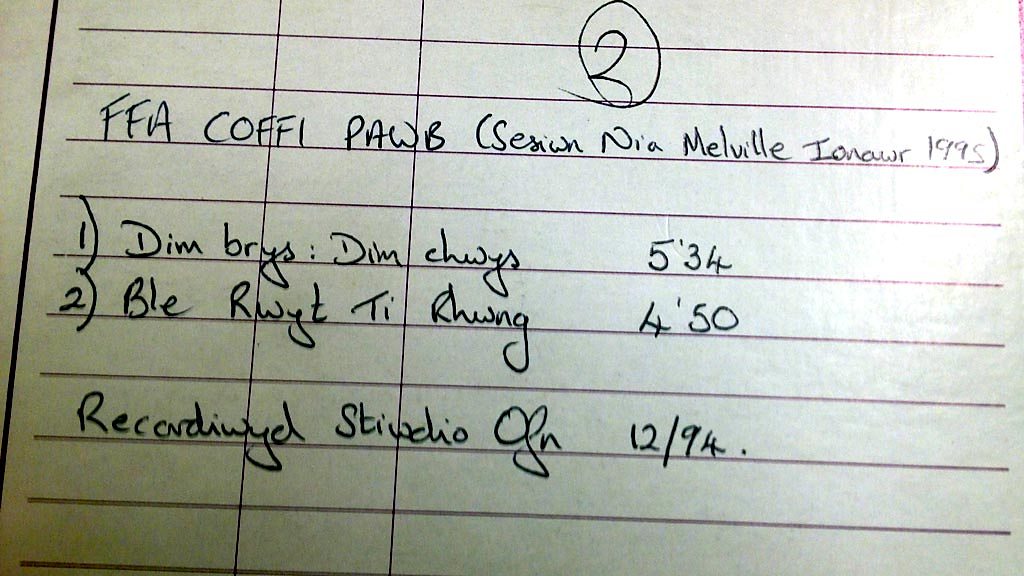 2
FFA COFFI PAWB (Sesiwn Nia Melville Ionawr 1995)
1) Dim brys: Dim chwys 5'34
2) Ble Rwyt Ti Rhwng 4'50
Recordiwyd Stiwdio Ofn 12/94.